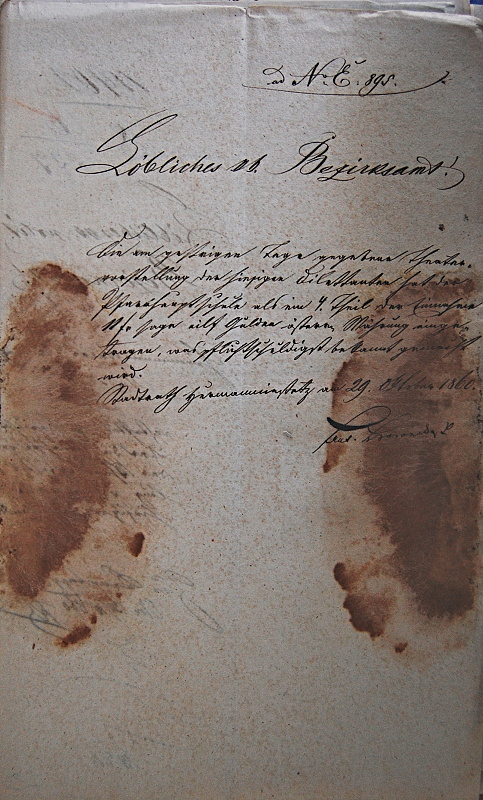 ad N. E. 895.
Löbliches kk. Bezirksamt!
Die am gestrigen Tage gegebene Theater-
vorstellung der hiesigen Dilettanten hat der
Pfarrhauptschule als ein 4. Theil der Einnahme
11 fr sage eilf Gulden österr. Währung einge-
tragen, was pflichtschuldigst bekannt gemacht
wird.
Stadtrath Hermannmestetz am 29. Oktober 1860.